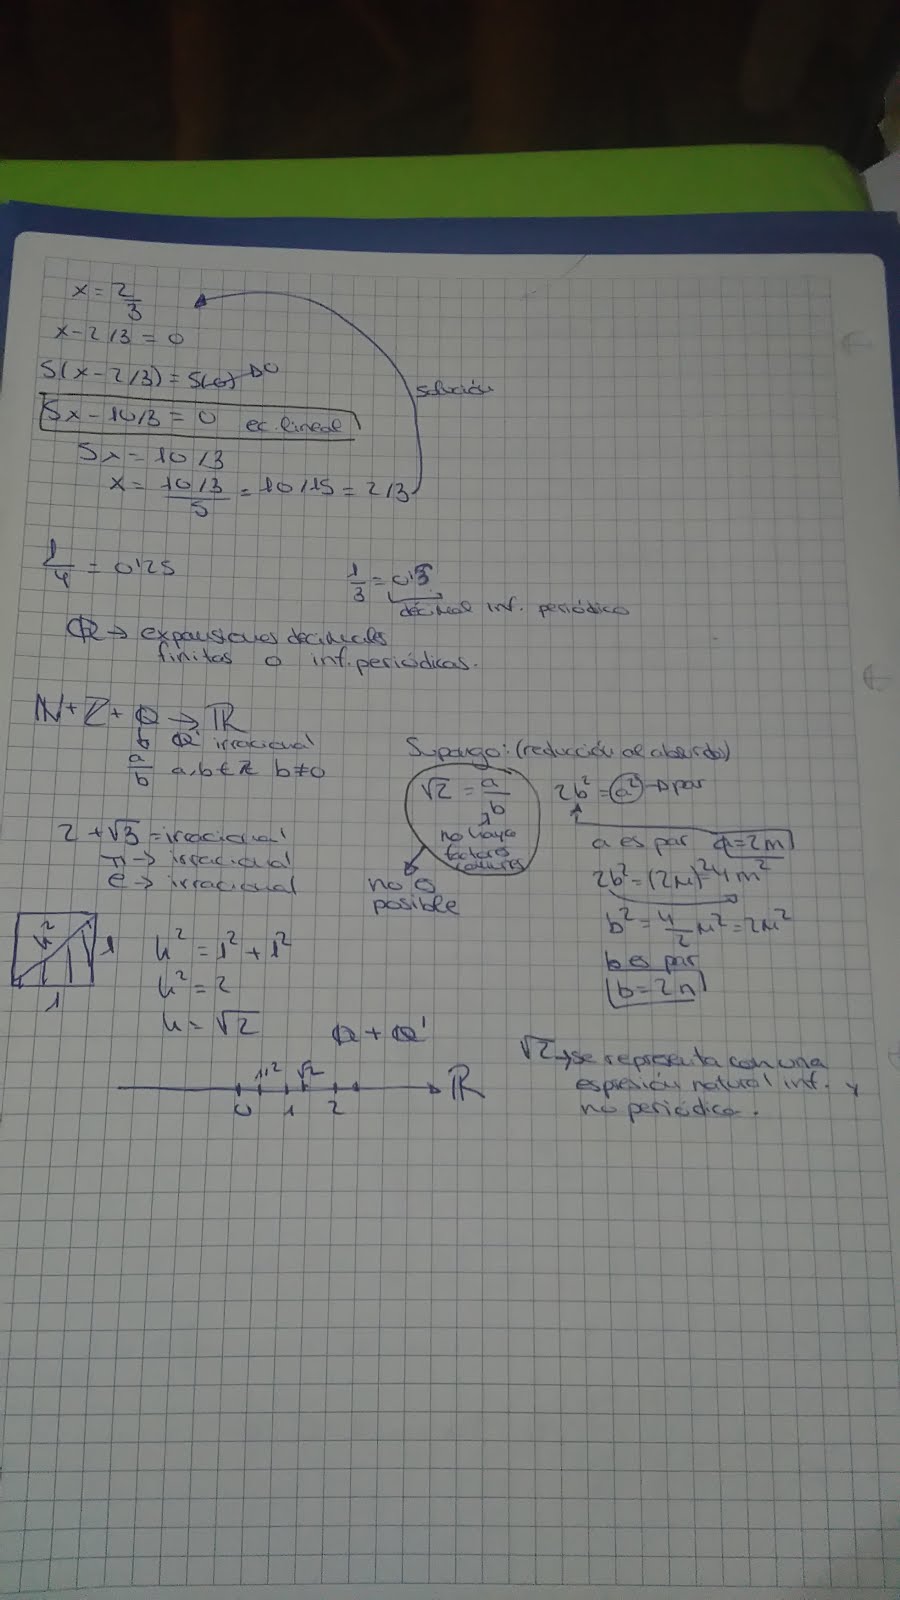 x = 2/3
x - 2/3 = 0
5(x - 2/3) = 5(0) → 0
solución
5x - 10/3 = 0 ec. lineal
5x = 10/3
x = (10/3)/5 = 10/15 = 2/3
1/4 = 0'25
1/3 = 0'3̂
decimal inf. periódico
Q → expansiones decimales
finitas o inf. periódicas.
N + Z + Q → R
Q' irracional
a/b a, b ∈ Z b ≠ 0
2 + √3 = irracional
π → irracional
e → irracional
Supongo: (reducción al absurdo)
√2 = a/b
no haya
factores
comunes
no es
posible
2b² = a² → par
a es par a = 2m
2b² = (2m)² = 4m²
b² = 4/2 m² = 2m²
b es par
b = 2n
1
1
h² = 1² + 1²
h² = 2
h = √2
Q + Q'
√2 → se representa con una
espresión natural inf. y
no periódica.
√2
R
0 1 2